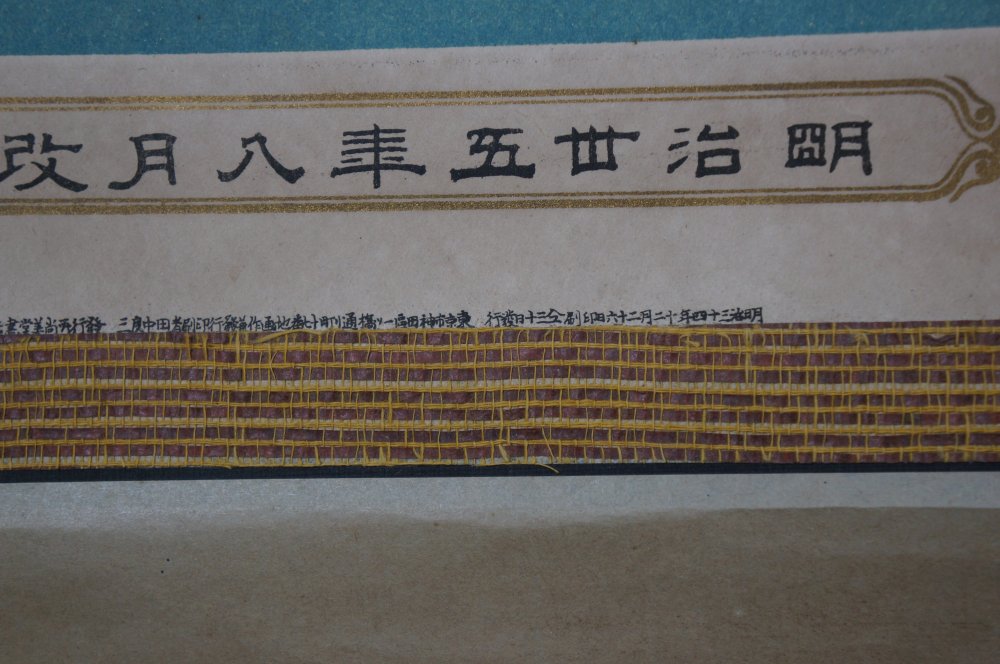 明治丗五年八月改
明治三十四年十二月二十六日印刷仝三十日發行 東京市神田區一ツ橋通町十七番地画作兼發行印刷者田中良三 發行所尚美堂書